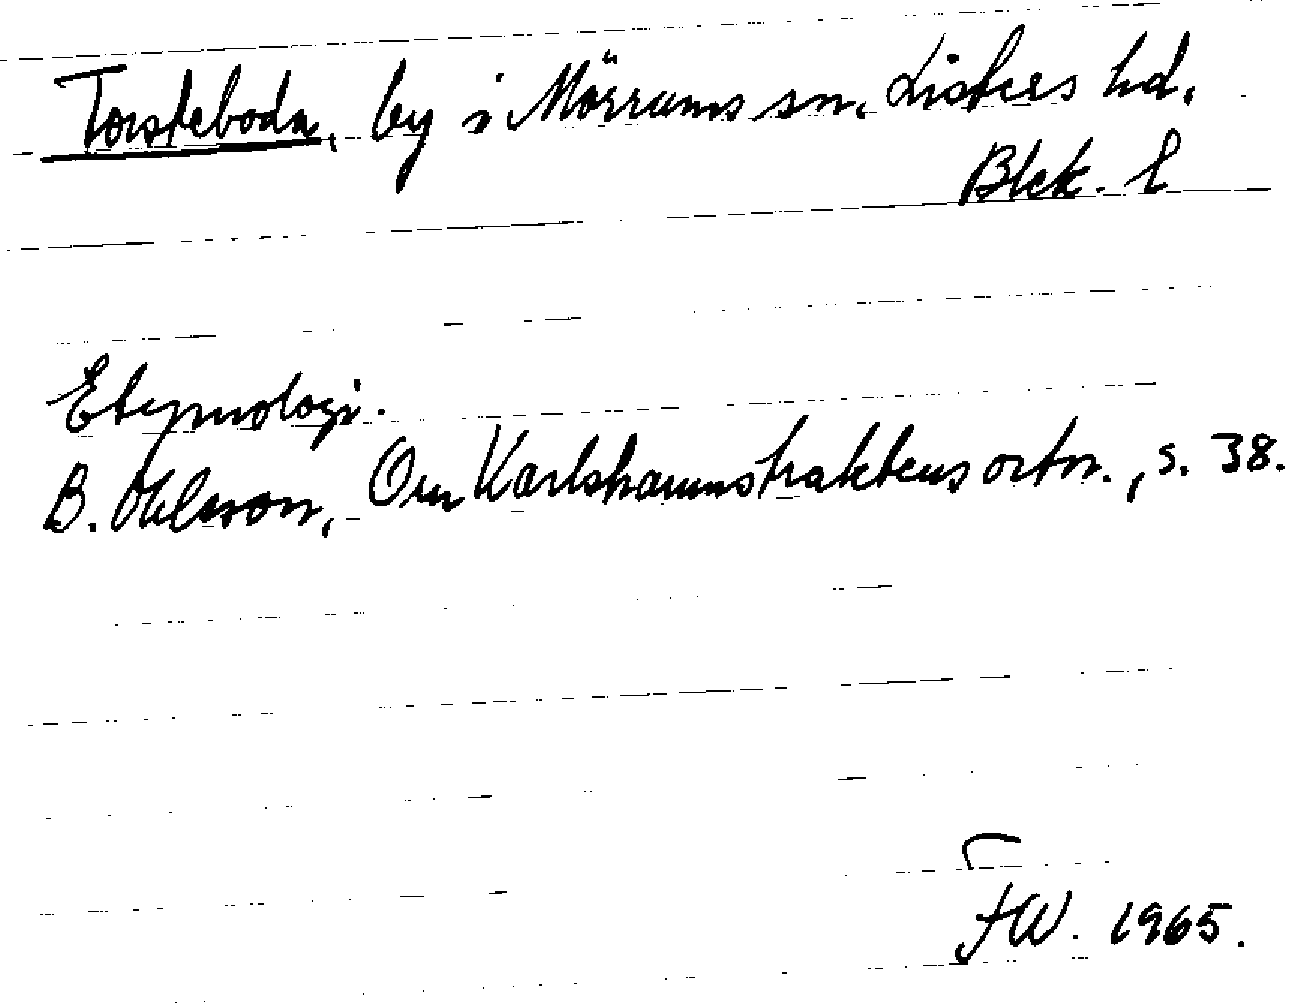 Torsteboda, by i Mörrums sn. Listers hd.
Blek. l
Etymologi.
B. Ohlsson, Om Karlshamnstraktens ortn., s. 38.
FW. 1965.